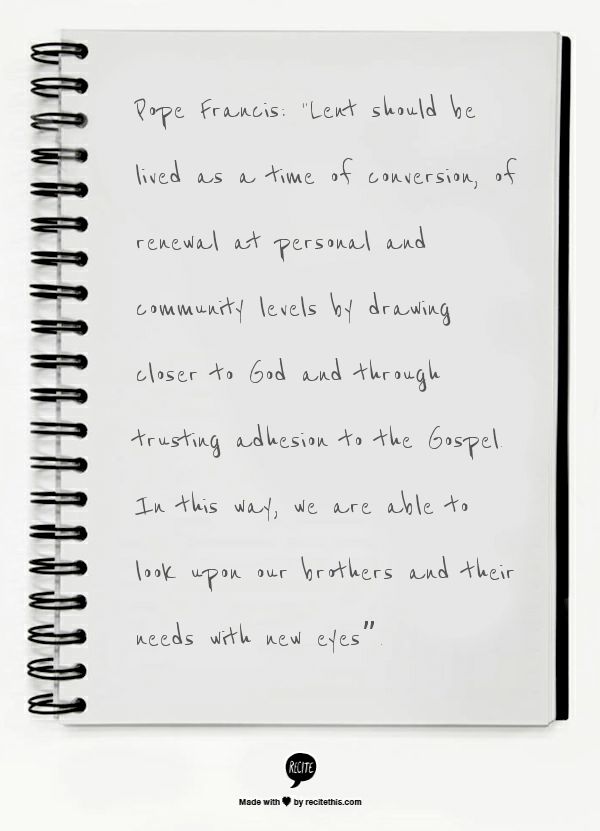 Pope Francis: "Lent should be
lived as a time of conversion, of
renewal at personal and
community levels by drawing
closer to God and through
trusting adhesion to the Gospel.
In this way, we are able to
look upon our brothers and their
needs with new eyes".
RECITE
Made with ♥ by recitethis.com